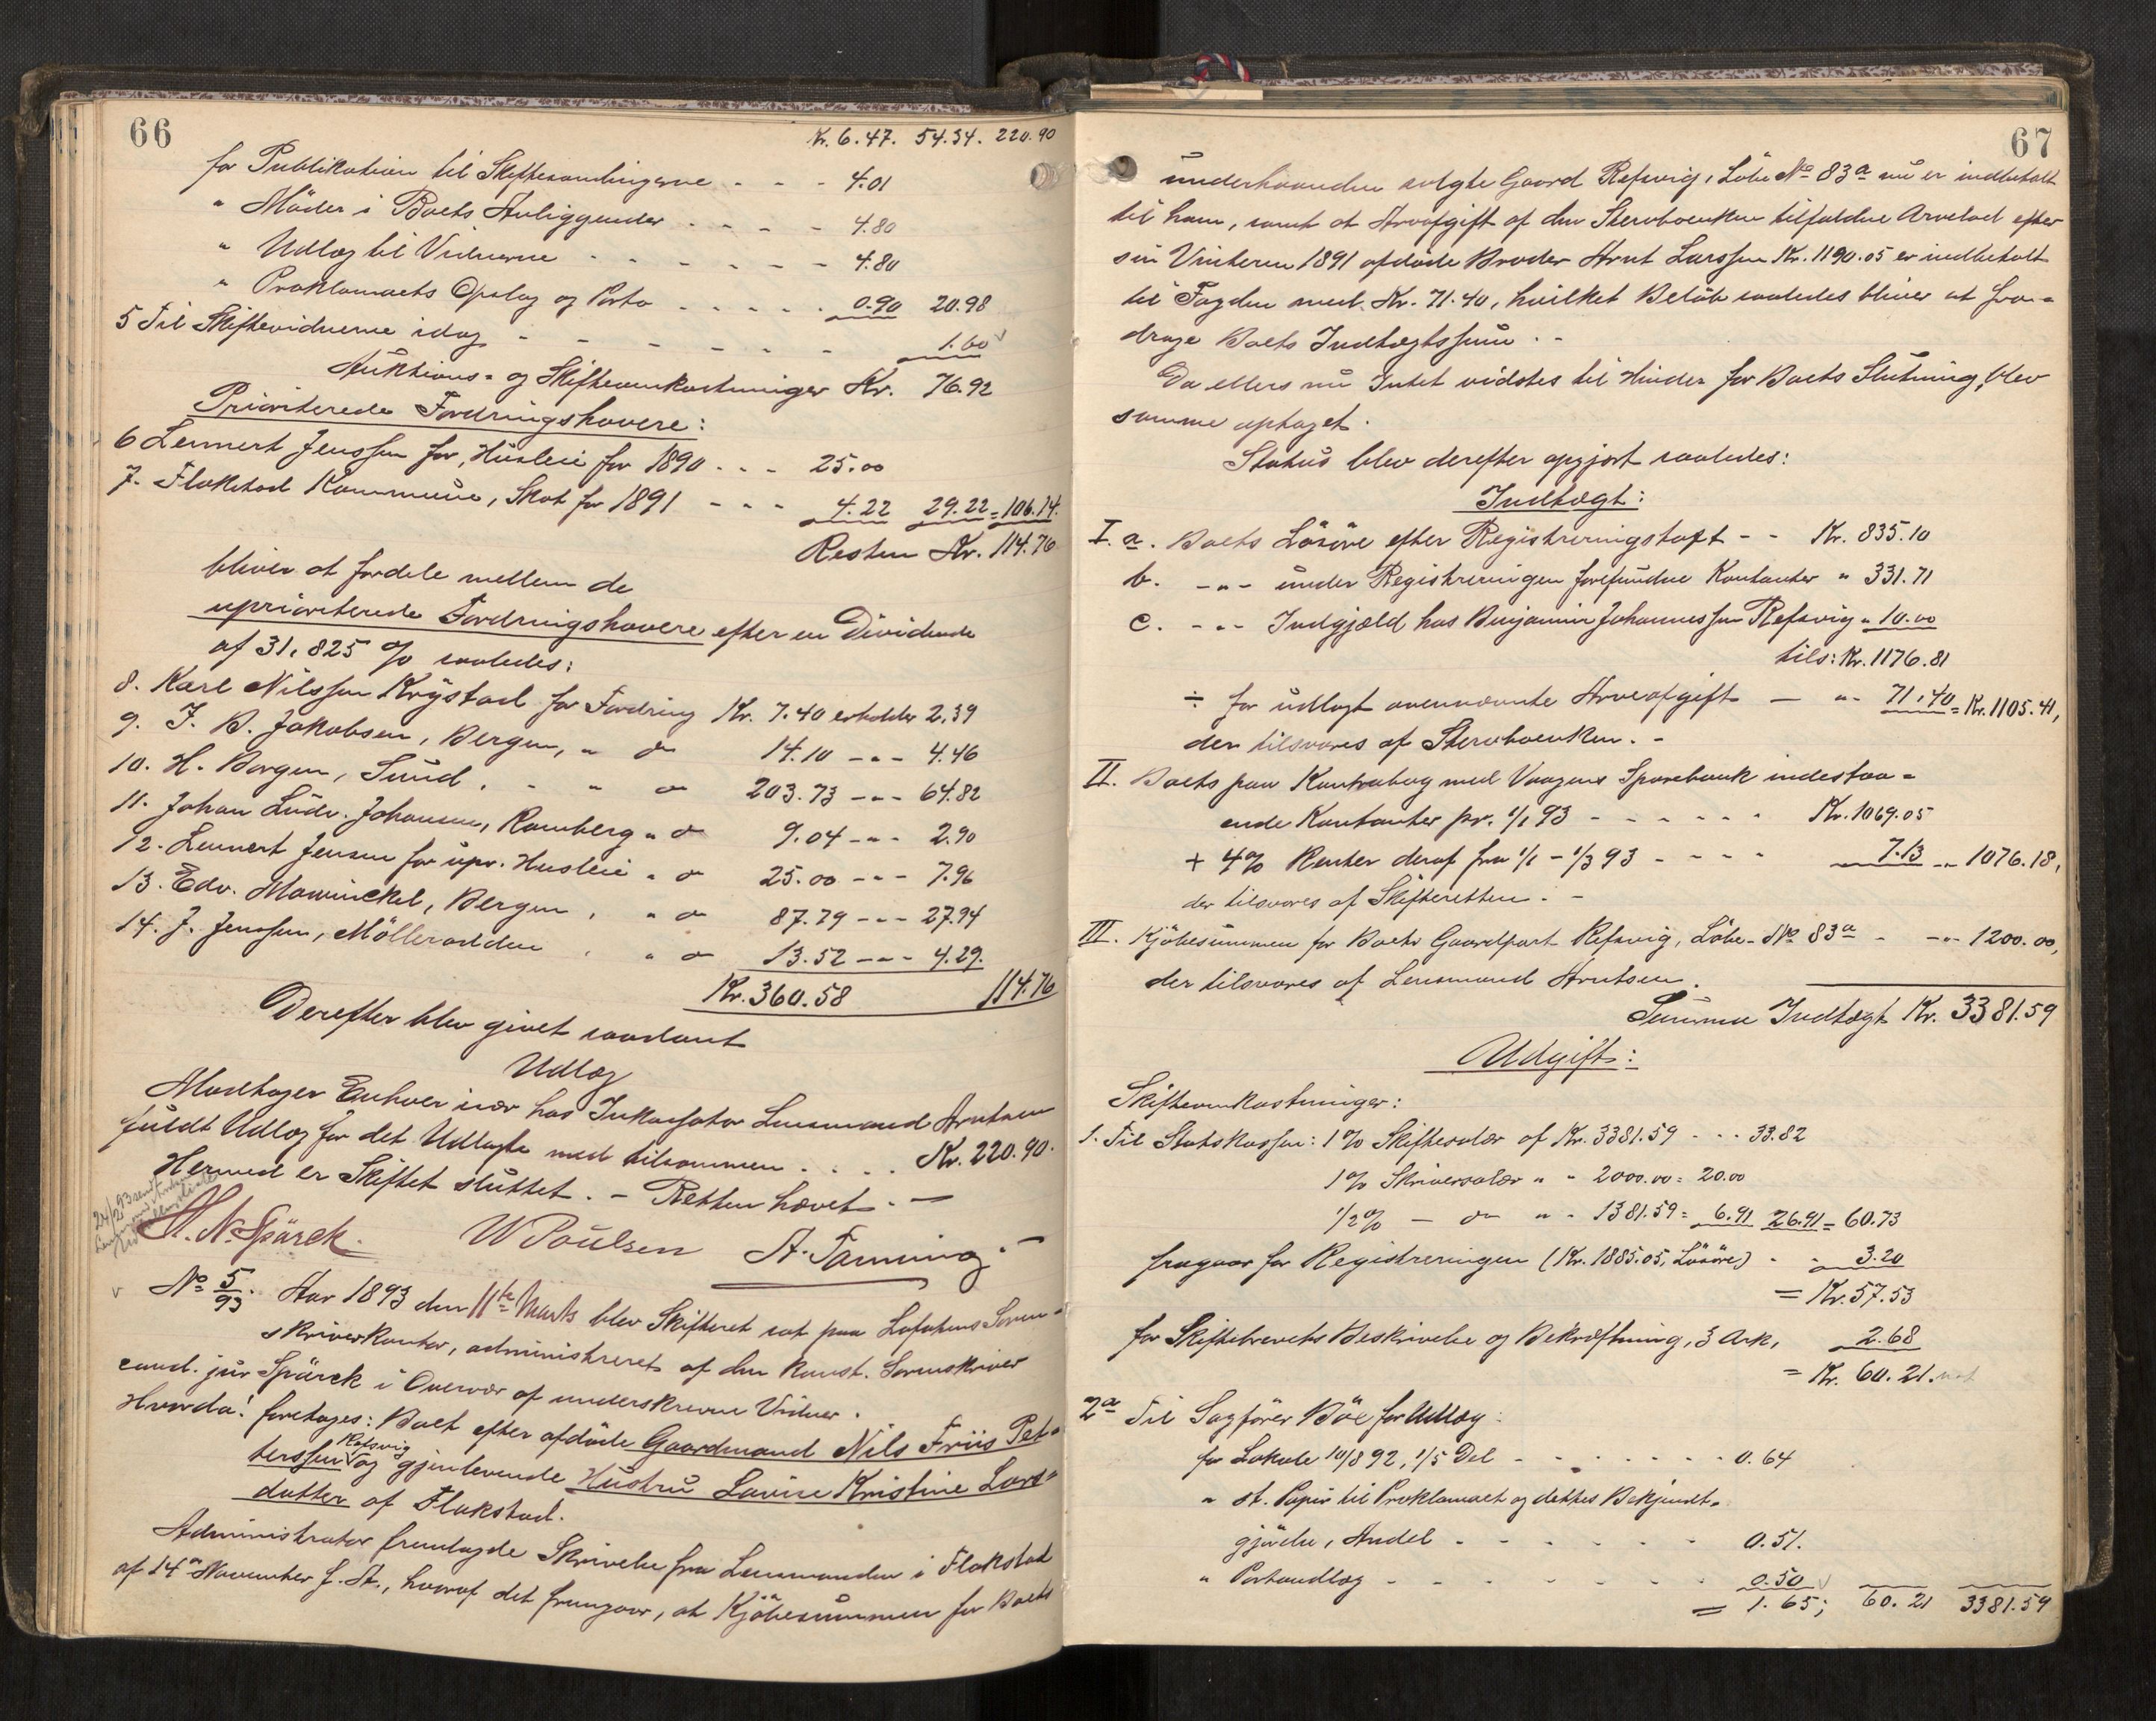 66
Kr. 6.47. 54.34. 220.90
for Publikation til Skiftesamlingerne - - - 4.01
" Møder i Boets Anliggender - - - - 4.80
" Udlæg til Vidnerne - - - - - - 4.80
" Proklamaets Opslag og Porto - - - - - 0.90 20.98
5 Til Skiftevidnerne idag - - - - - - 1.60
Auktions- og Skifteomkostninger Kr. 76.92
Prioriterede Fordringshavere:
6 Lennert Jenssen for Husleie for 1890 - - - 25.00
7. Flakstad Kommune, Skat for 1891 - - - 4.22 29.22 = 106.14.
Resten Kr. 114.76
bliver at fordele mellem de
uprioriterede Fordringshavere efter en Dividende
af 31,825 % saaledes:
8. Karl Nilssen Krystad for Fordring Kr. 7.40 erholder 2.39
9. J. B. Jakobsen, Bergen, " do 14.10 -"- 4.46
10. H. Borgen, Sund, - " do 203.73 -"- 64.82
11. Johan Ludv. Johansen, Ramberg " do 9.04 -"- 2.90
12. Lennert Jensen for upr. Husleie " do 25.00 -"- 7.96
13. Edv. Mowinckel, Bergen, " do 87.79 -"- 27.94
14. J. Jenssen, Mølleradden, " do 13.52 -"- 4.29.
Kr. 360.58 114.76
Derefter blev givet saadant
Udlæg
Modtager Enhver især hos Inkassator Lensmand Arntsen
fuldt Udlæg for det Udlagte med tilsammen . . . . Kr. 220.90.
Hermed er Skiftet sluttet. - Retten hævet. -
24/2 93 sendt
H. N. Spärck. W Poulsen A. Fanning.
No 5/93. Aar 1893 den 11te Marts blev Skifteret sat paa Lofotens Soren-
skriverkontor, administreret af den konst. Sorenskriver
cand. jur Spärck i Overvær af underskrevne Vidner.
Hvorda: foretoges: Boet efter afdøde Gaardmand Nils Friis Pet-
Refsvig
terssen og gjenlevende Hustru Lovise Kristine Lars-
datter af Flakstad.
Administrator fremlagde Skrivelse fra Lensmanden i Flakstad
af 14de November f. A., hvoraf det fremgaar, at Kjøbesummen for Boets
67
underhaanden solgte Gaard Refsvig, Løbe No 83a nu er indbetalt
til ham, samt at Arveafgift af den Stervboenken tilfaldne Arvelod efter
sin Vinteren 1891 afdøde Broder Arnt Larssen Kr. 1190.05 er indbetalt
til Fogden med Kr. 71.40, hvilket Beløb saaledes bliver at fra-
drage Boets Indtægtssum. -
Da ellers nu Intet vidstes til Hinder for Boets Slutning, blev
samme optaget.
Status blev derefter opgjort saaledes:
Indtægt:
I. a. Boets Løsøre efter Registreringstaxt - - Kr. 835.10
b. -"- under Registreringen forefundne Kontanter " 331.71
c. -"- Indgjæld hos Benjamin Johannessen Refsvig " 10.00
tils: Kr. 1176.81
÷ for udlagt ovennævnte Arveafgift - -"- 71.40 = Kr. 1105.41,
der tilsvares af Stervboenken. -
II. Boets paa Kontrabog med Vaagens Sparebank indestaa-
ende Kontanter pr. 1/1 93 - - - - - - Kr. 1069.05
+ 4% Renter deraf fra 1/1 - 1/3 93 - - - - 7.13 -"- 1076.18,
der tilsvares af Skifteretten. -
III. Kjøbesummen for Boets Gaardpart Refsvig, Løbe-No 83a - -"- 1200.00,
der tilsvares af Lensmand Arntsen.
Summa Indtægt Kr. 3381.59
Udgift:
Skifteomkostninger:
1. Til Statskassen: 1% Skiftesalær af Kr. 3381.59 - - - 33.82
1% Skriversalær " " 2000.00 = 20.00
1/2% - do " " 1381.59 = 6.91 26.91 = 60.73
fragaar for Registreringen (Kr. 1885.05, Løsøre) - - 3.20
= Kr. 57.53
for Skiftebrevets Beskrivelse og Bekræftning, 3 Ark, 2.68
= Kr. 60.21.
2a Til Sagfører Bøe for Udlæg:
for Lokale 10/8 92, 1/5 Del - - - - - - - 0.64
" st. Papir til Proklamaet og dettes Bekjendt-
gjørelse, Andel - - - - - - - 0.51.
" Portoudlæg - - - - - - - - 0.50
= 1.65; 60.21 3381.59